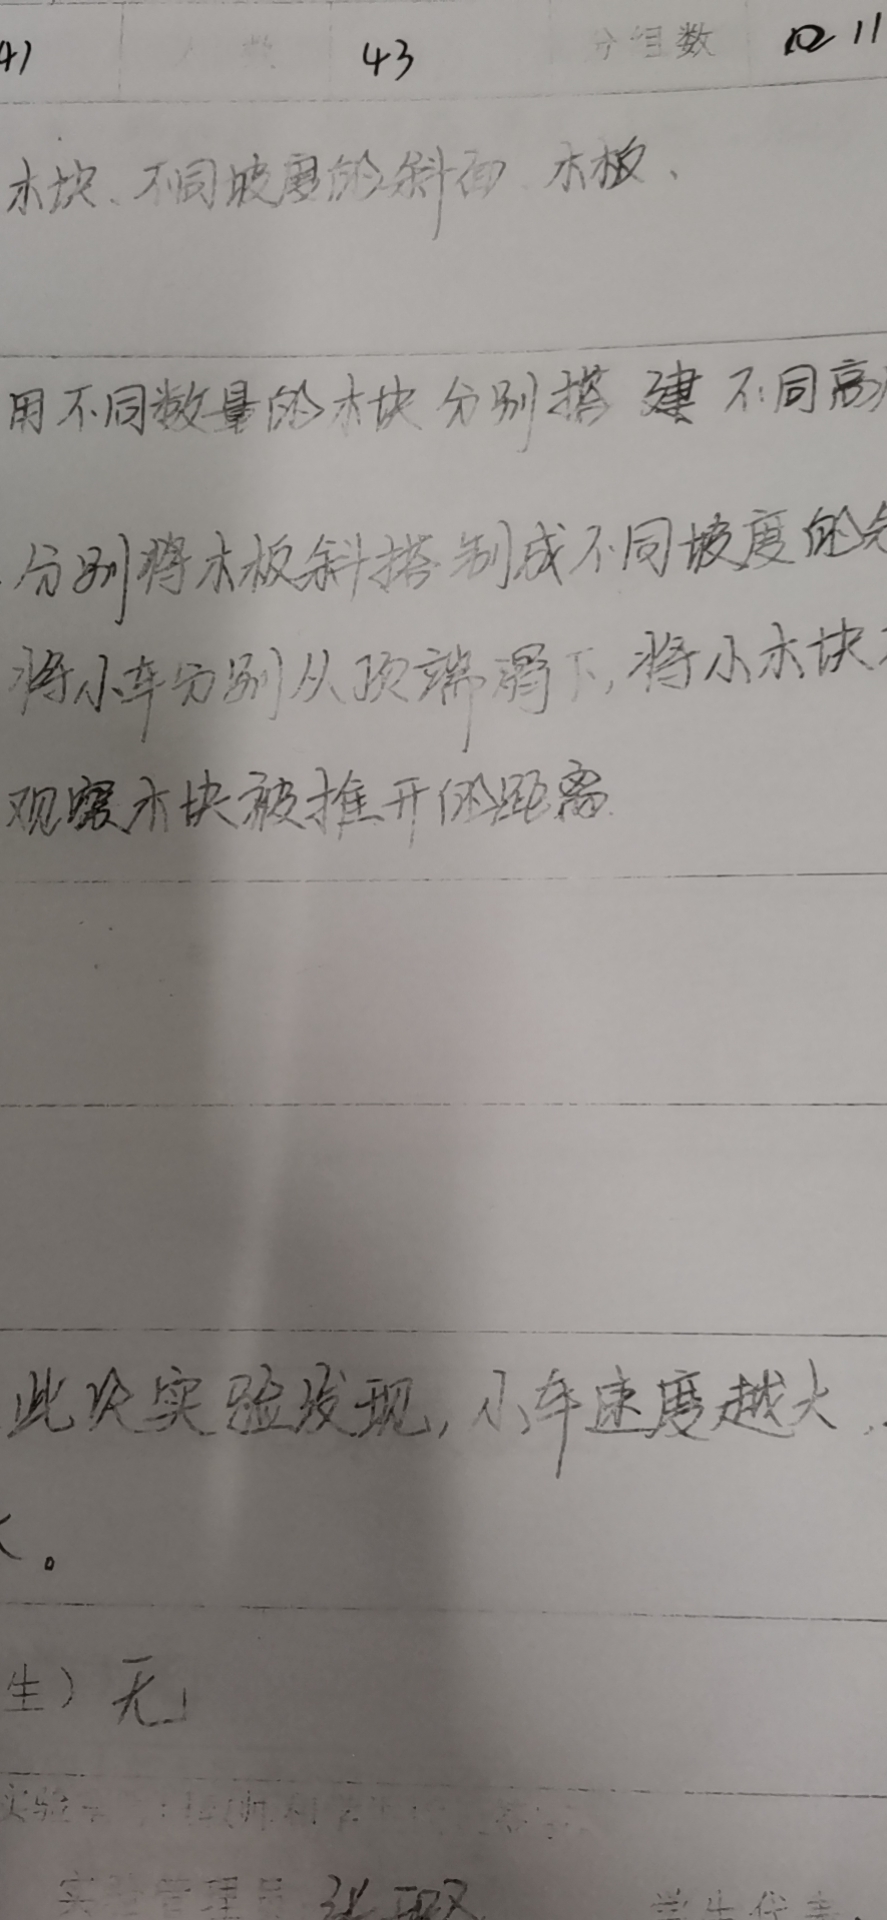 41 人数 43 分组数 11
木块、不同坡度的斜面、木板、
用不同数量的木块分别搭建不同高
分别将木板斜搭制成不同坡度的
将小车分别从顶端滑下,将小木块
观察木块被推开的距离
此次实验发现,小车速度越大,
。
生)无
实验
实验管理员 学生代表